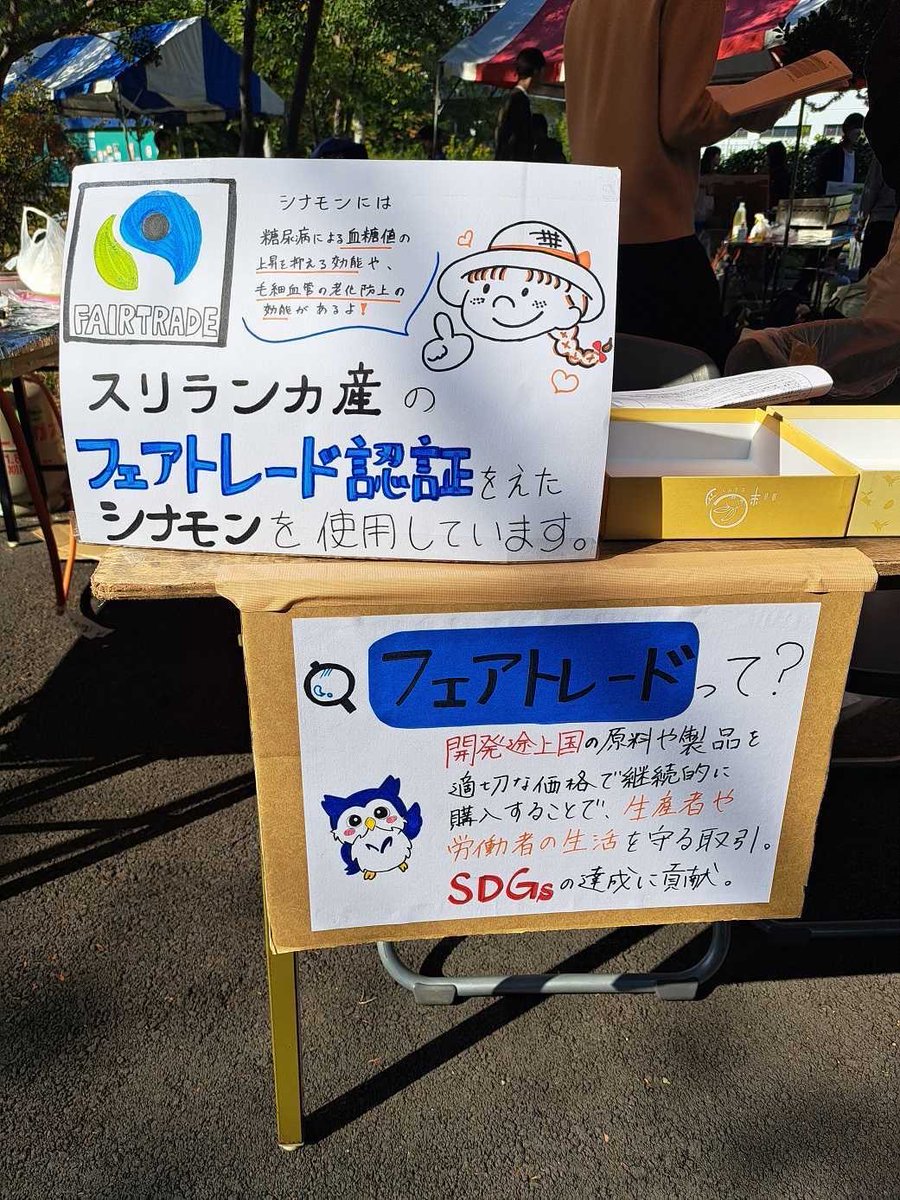 FAIRTRADE
シナモンには
糖尿病による血糖値の
上昇を抑える効能や、
毛細血管の老化防止の
効能があるよ!
スリランカ産の
フェアトレード認証をえた
シナモンを使用しています。
フェアトレードって?
開発途上国の原料や製品を
適切な価格で継続的に
購入することで、生産者や
労働者の生活を守る取引。
SDGsの達成に貢献。